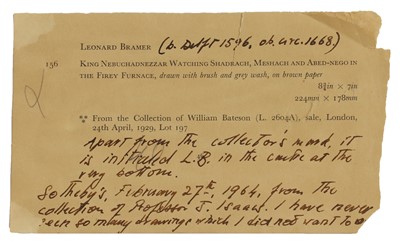 LEONARD BRAMER (b. Delft 1596, ob. circ. 1668.)
156 KING NEBUCHADNEZZAR WATCHING SHADRACH, MESHACH AND ABED-NEGO IN
THE FIREY FURNACE, drawn with brush and grey wash, on brown paper
8¾in × 7in
224mm × 178mm
From the Collection of William Bateson (L. 2604A), sale, London,
24th April, 1929, Lot 197
Apart from the collector's mark, it
is initialed L.B. in the centre at the
very bottom.
Sotheby's, February 27th, 1964, from the
collection of Professor J. Isaacs. I have never
seen so many drawings which I did not want to